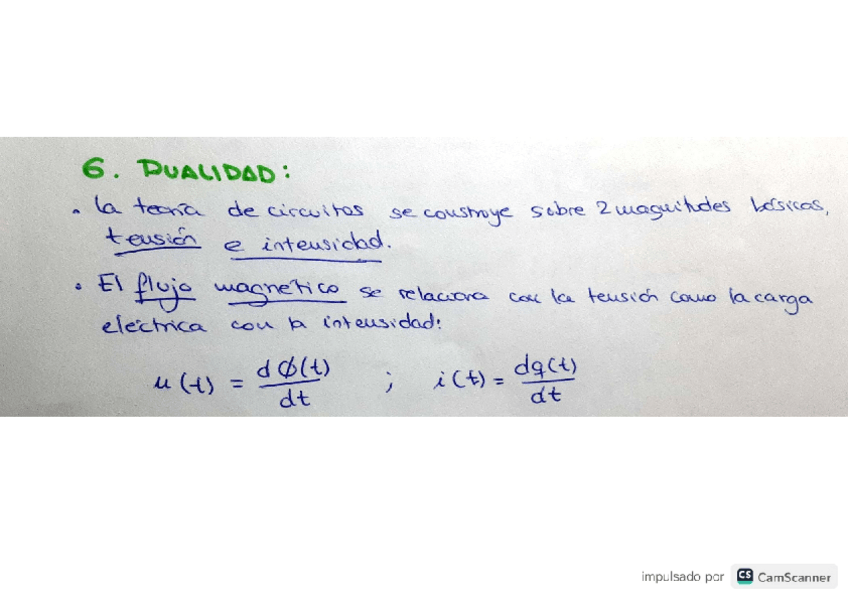 6. DUALIDAD:
• La teoría de circuitos se construye sobre 2 magnitudes básicas,
tensión e intensidad.
• El flujo magnético se relaciona con la tensión como la carga
eléctrica con la intensidad:
u(t) = dϕ(t)/dt ; i(t) = dq(t)/dt
impulsado por CS CamScanner